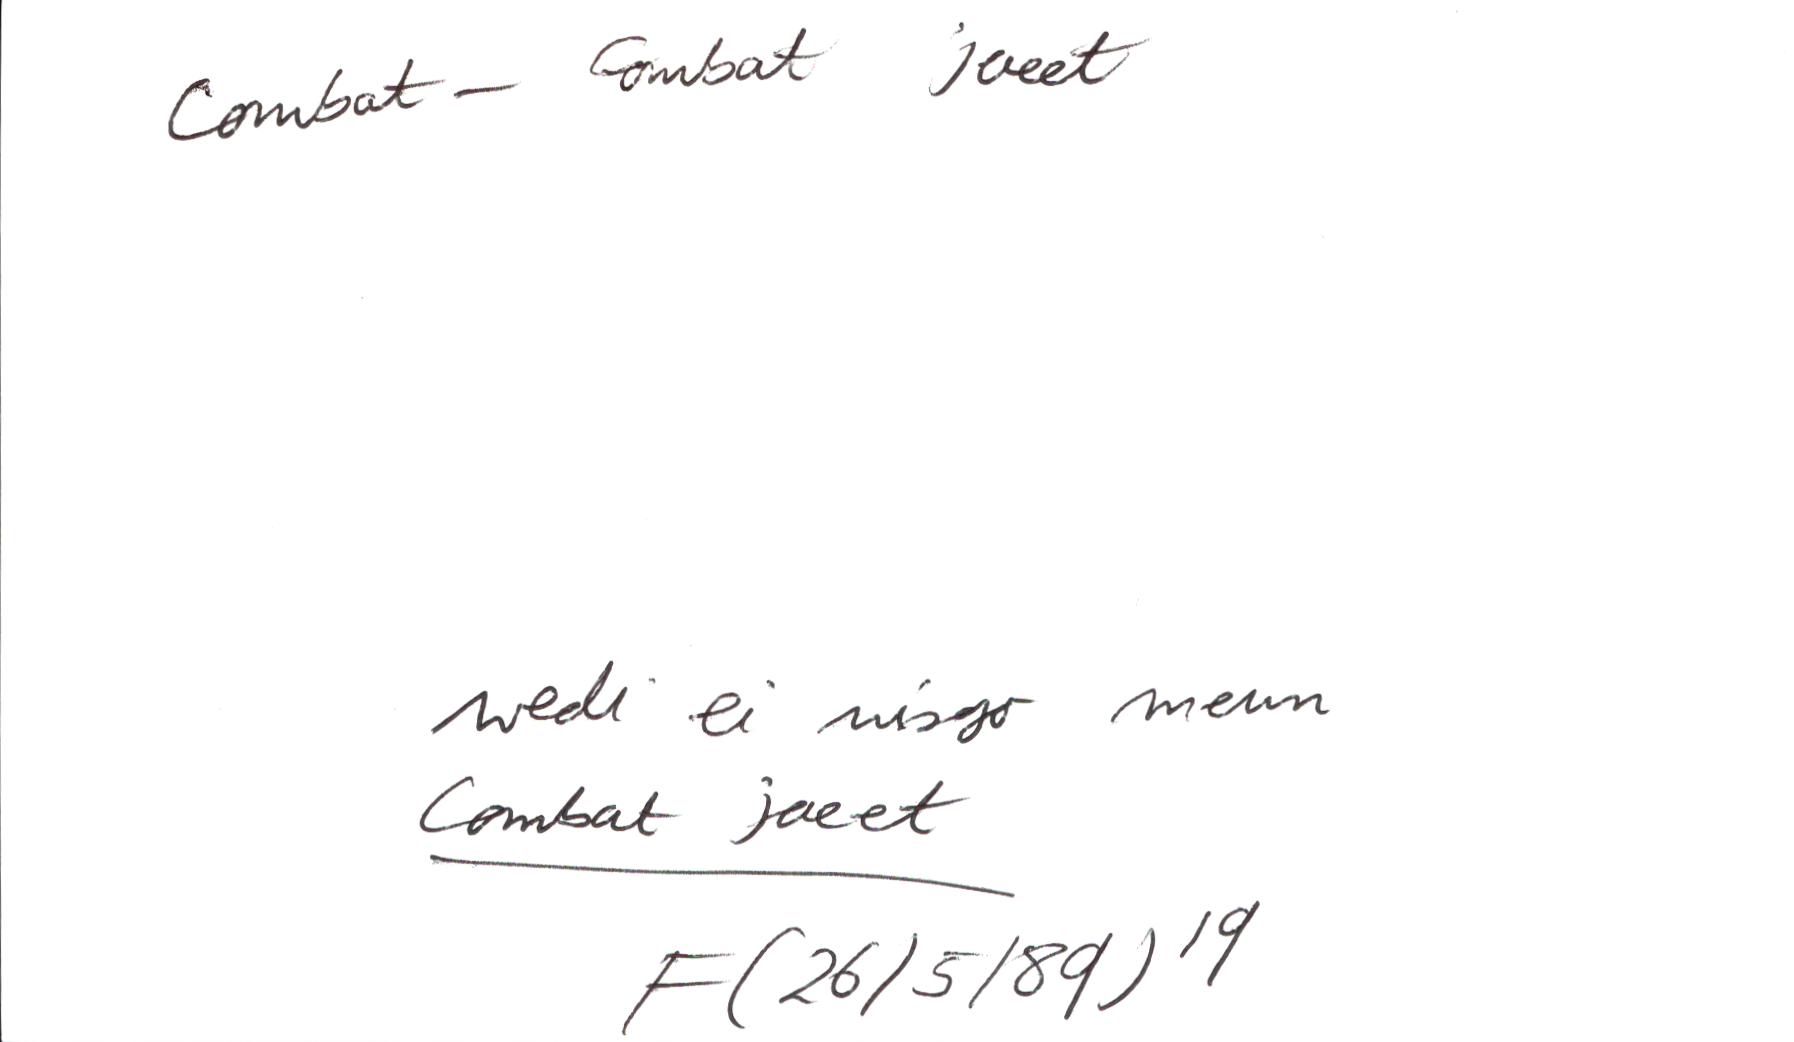 Combat - Combat jacet
wedi ei wisgo mewn
Combat jacet
F(26/5/89)19